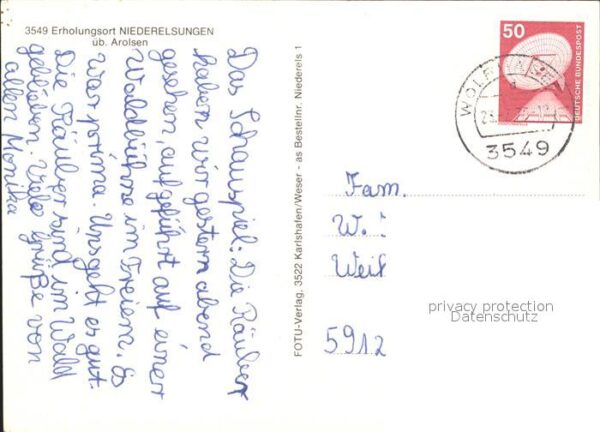 3549 Erholungsort NIEDERELSUNGEN
üb. Arolsen
Das Schauspiel: Die Räuber
haben wir gestern abend
gesehen, aufgeführt auf einer
Waldbühne im Freien. Es
war prima. Uns geht es gut.
Die Räuber sind im Wald
geblieben. Viele Grüße von
allen Monika
FOTU-Verlag, 3522 Karlshafen/Weser - as Bestellnr. Niederels 1
50
DEUTSCHE BUNDESPOST
3549
Fam.
W.
Weif
5912
privacy protection
Datenschutz